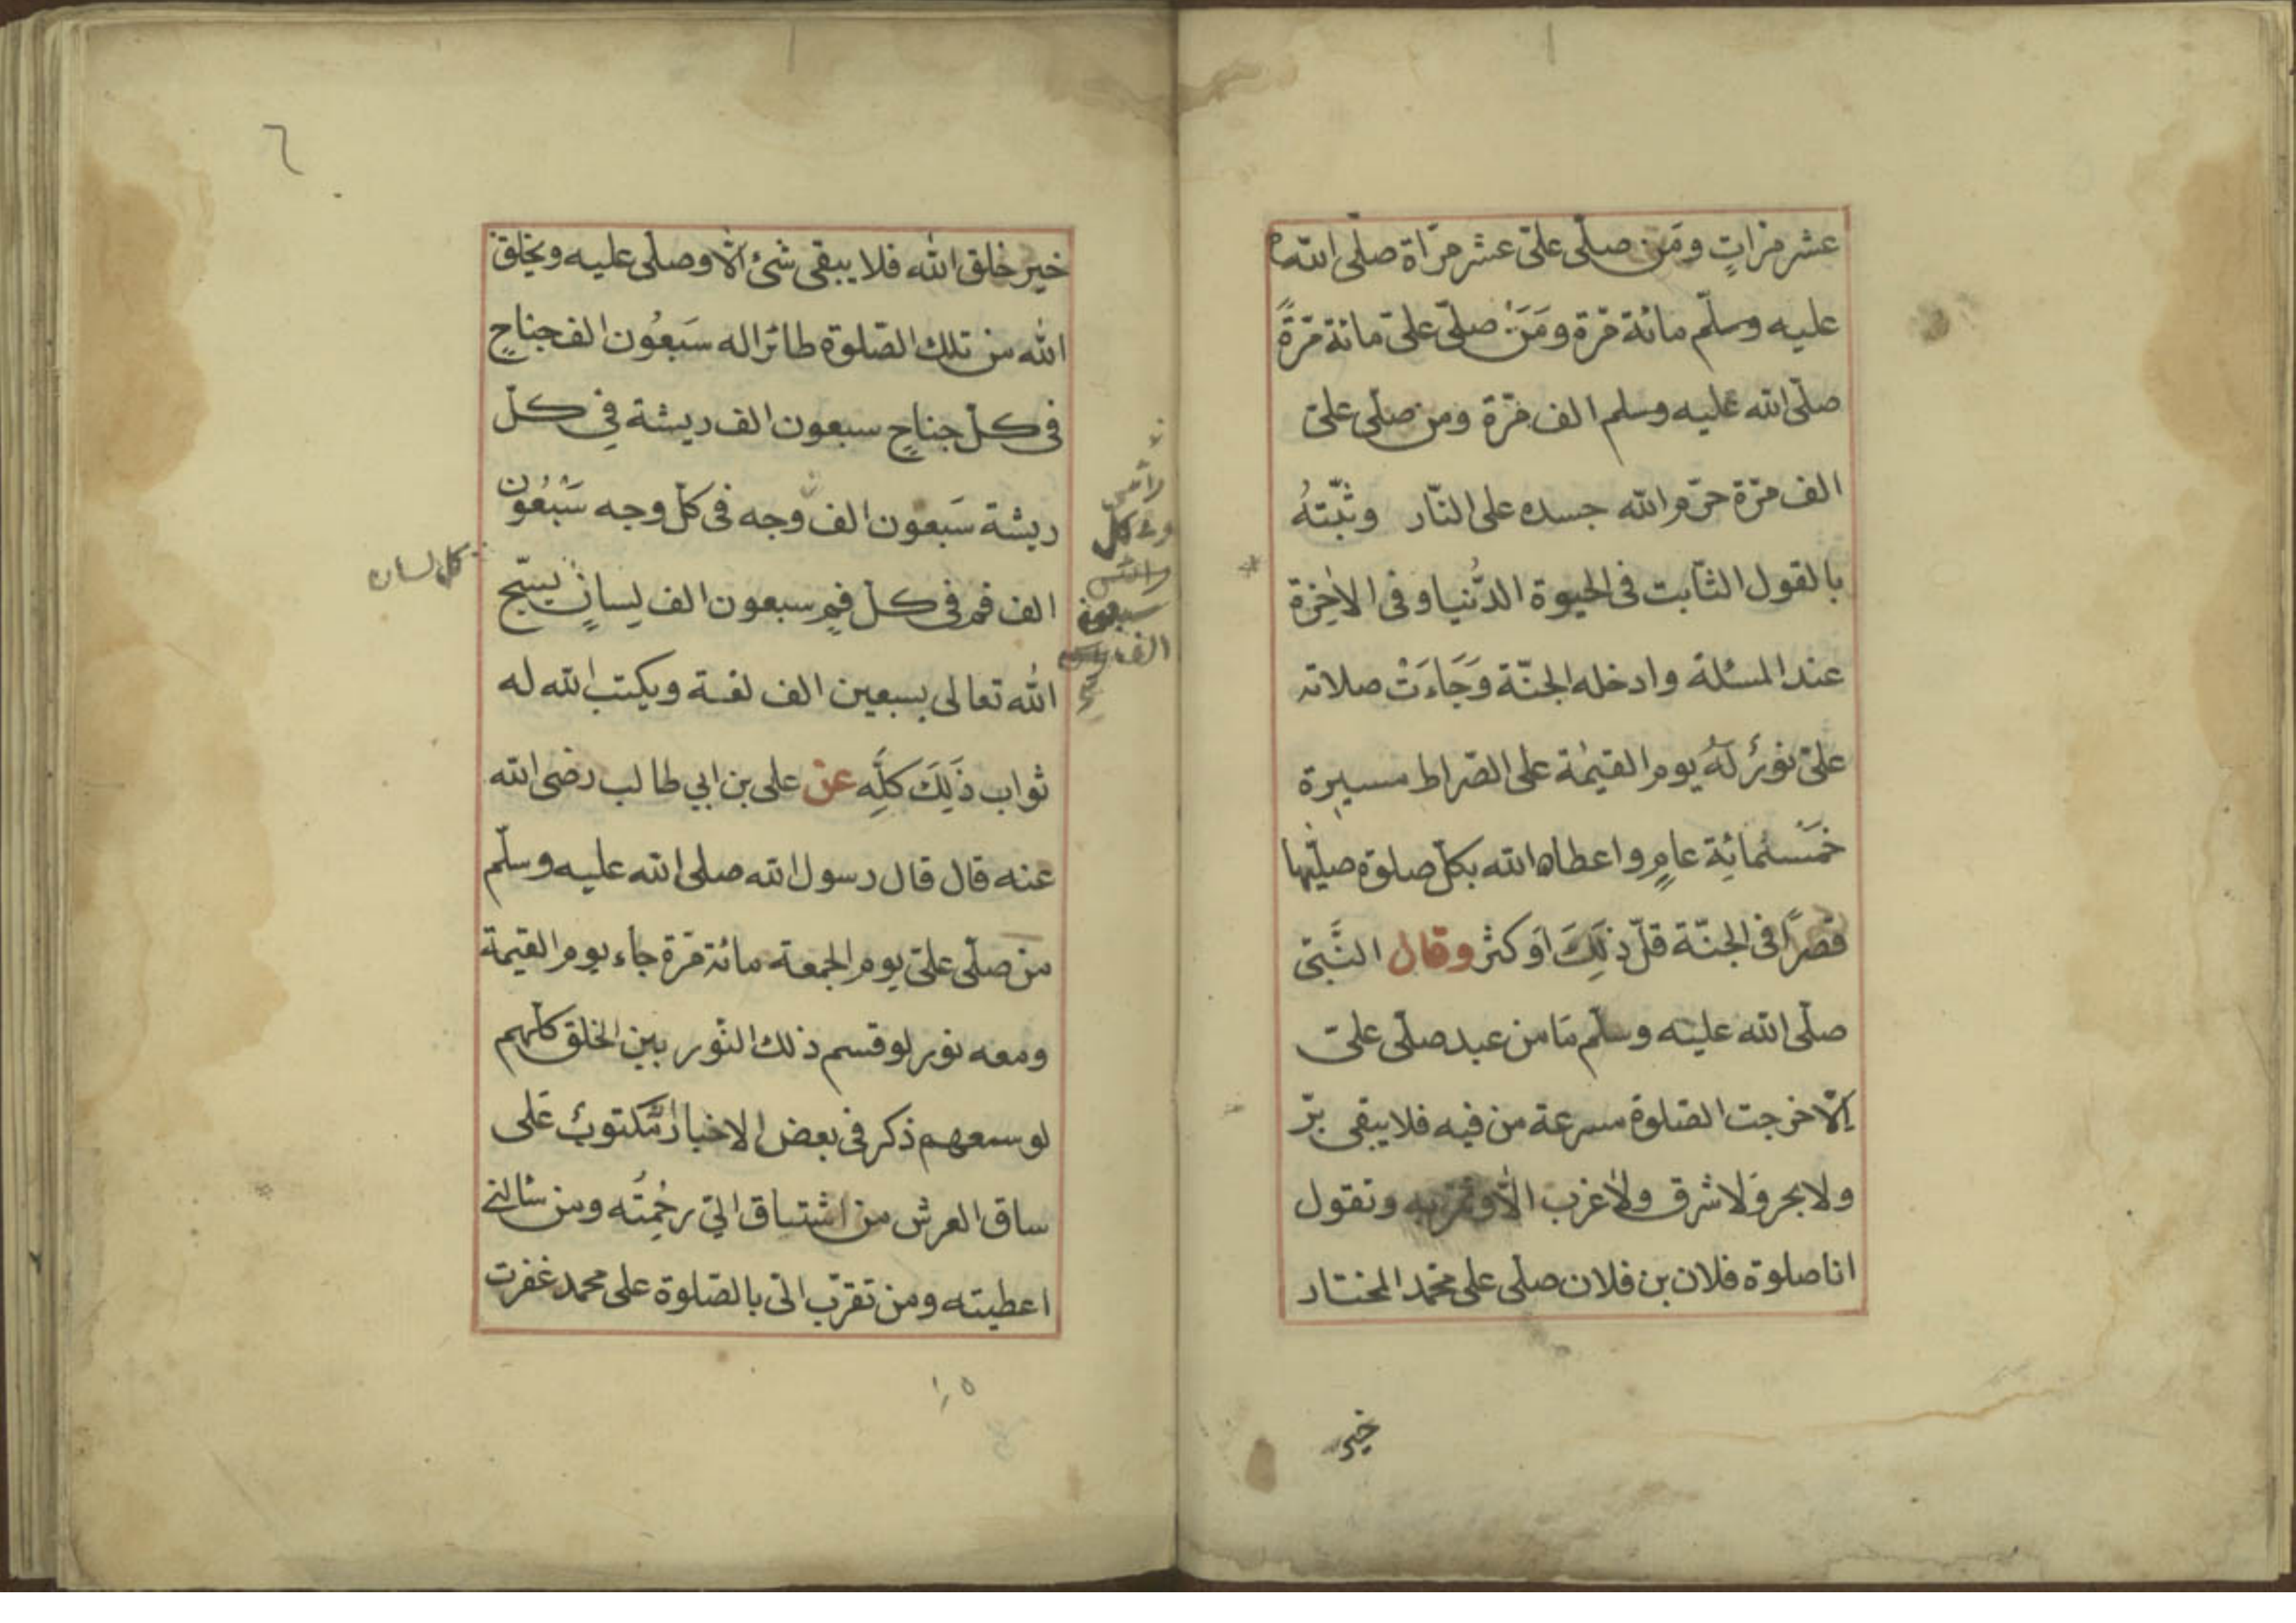 عشر مرّاتٍ ومَن صلّى علىّ عشر مرّاة صلّى الله
عليه وسلّم مائة مرّة ومَنْ صلّى علىّ مائة مرّةً
صلّى الله عليه وسلم الف مرّة ومن صلّى علىّ
الف مرّة حرّم الله جسده على النّار وثبّتهُ
بالقول الثّابت فى الحيوة الدُّنيا وفى الاٰخرة
عند المسئلة وادخله الجنّة وَجَاءَتْ صلاته
علىّ نورٌ لَهُ يوم القيٰمة على الصّراط مسيرة
خَمْسُمائِة عامٍ واعطاه الله بكلّ صلوة صلّيها
قصرًا فى الجنّة قلّ ذٰلِكَ اَو كثر وقال النَّبىّ
صلّى الله عليه وسلّم مَا من عبد صلّى علىّ
اِلّا خرجت الصّلوة مسرعة من فيه فلا يبقى برّ
ولا بحر وَلا شرق ولا غرب الّا وتمرّ به وتقول
انا صلوة فلان بن فلان صلّى على محمّد المختار
خير
٦
خير خلق الله فلا يبقى شئ الّا وصلّى عليه ويخلق
الله من تلك الصّلوة طائرا له سَبعُون الف جناحٍ
فى كلّ جناحٍ سبعون الف ريشة فى كلّ
ريشة سَبعون الف وجه فى كلّ وجه سَبْعُون
الف فم فى كلّ فمٍ سبعون الف لِسانٍ يسبّح
الله تعالى بسبعين الف لغة ويكتب الله له
ثواب ذٰلِكَ كلِّه عن على بن ابي طالب رضى الله
عنه قال قال رسول الله صلى الله عليه وسلّم
من صلّى علىّ يوم الجمعة مائة مرّة جاء يوم القيمة
ومعه نور لو قسم ذلك النّور بين الخلق كلّهم
لوسعهم ذكر فى بعض الاخبار مّكتوبٌ عَلى
ساق العرش من اشتاق الىّ رحمتُه ومن سالنى
اعطيته ومن تقرّب الىّ بالصّلوة على محمد غفرت
كل لسان
وفى كل
سبعون
الف